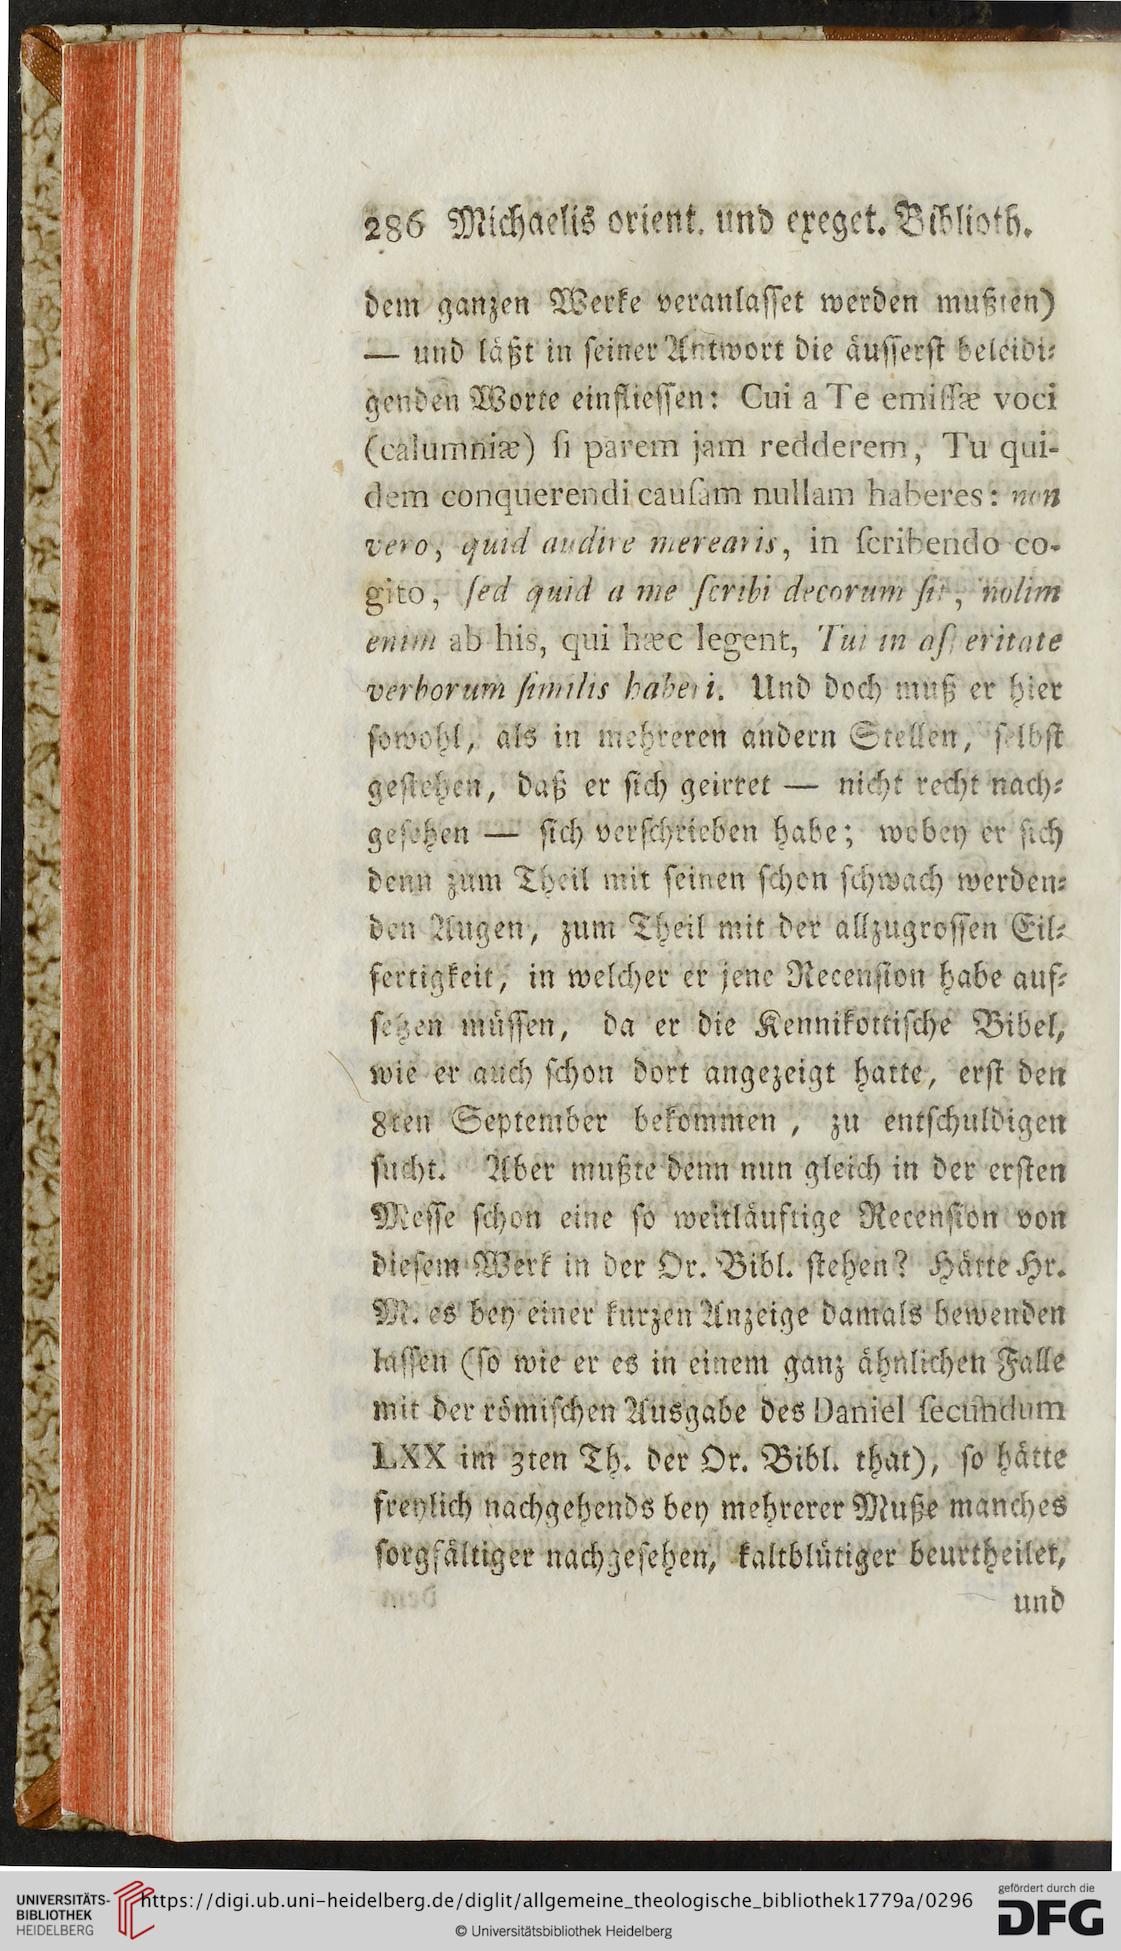 286 Michaelis orient. und exeget. Biblioth.
dem ganzen Werke veranlasset werden mußten)
— und läßt in seiner Antwort die äusserst beleidi⸗
genden Worte einfliessen: Cui a Te emiſſæ voci
(calumniæ) ſi parem jam redderem, Tu qui-
dem conquerendi cauſam nullam haberes: non
vero, quid audire merearis, in ſcribendo co-
gito, ſed quid a me ſcribi decorum ſit, nolim
enim ab his, qui hæc legent, Tui in aſperitate
verborum ſimilis haberi. Und doch muß er hier
sowohl, als in mehreren andern Stellen, selbst
gestehen, daß er sich geirret — nicht recht nach⸗
gesehen — sich verschrieben habe; wobey er sich
denn zum Theil mit seinen schon schwach werden⸗
den Augen, zum Theil mit der allzugrossen Eil⸗
fertigkeit, in welcher er jene Recension habe auf⸗
setzen müssen, da er die Kennikottische Bibel,
wie er auch schon dort angezeigt hatte, erst den
8ten September bekommen, zu entschuldigen
sucht. Aber mußte denn nun gleich in der ersten
Messe schon eine so weitläuftige Recension von
diesem Werk in der Or. Bibl. stehen? Hätte Hr.
M. es bey einer kurzen Anzeige damals bewenden
lassen (so wie er es in einem ganz ähnlichen Falle
mit der römischen Ausgabe des Daniel ſecundum
LXX im 3ten Th. der Or. Bibl. that), so hätte
freylich nachgehends bey mehrerer Muße manches
sorgfältiger nachgesehen, kaltblütiger beurtheilet,
und
UNIVERSITÄTS-
BIBLIOTHEK
HEIDELBERG
https://digi.ub.uni-heidelberg.de/diglit/allgemeine_theologische_bibliothek1779a/0296
© Universitätsbibliothek Heidelberg
gefördert durch die
DFG